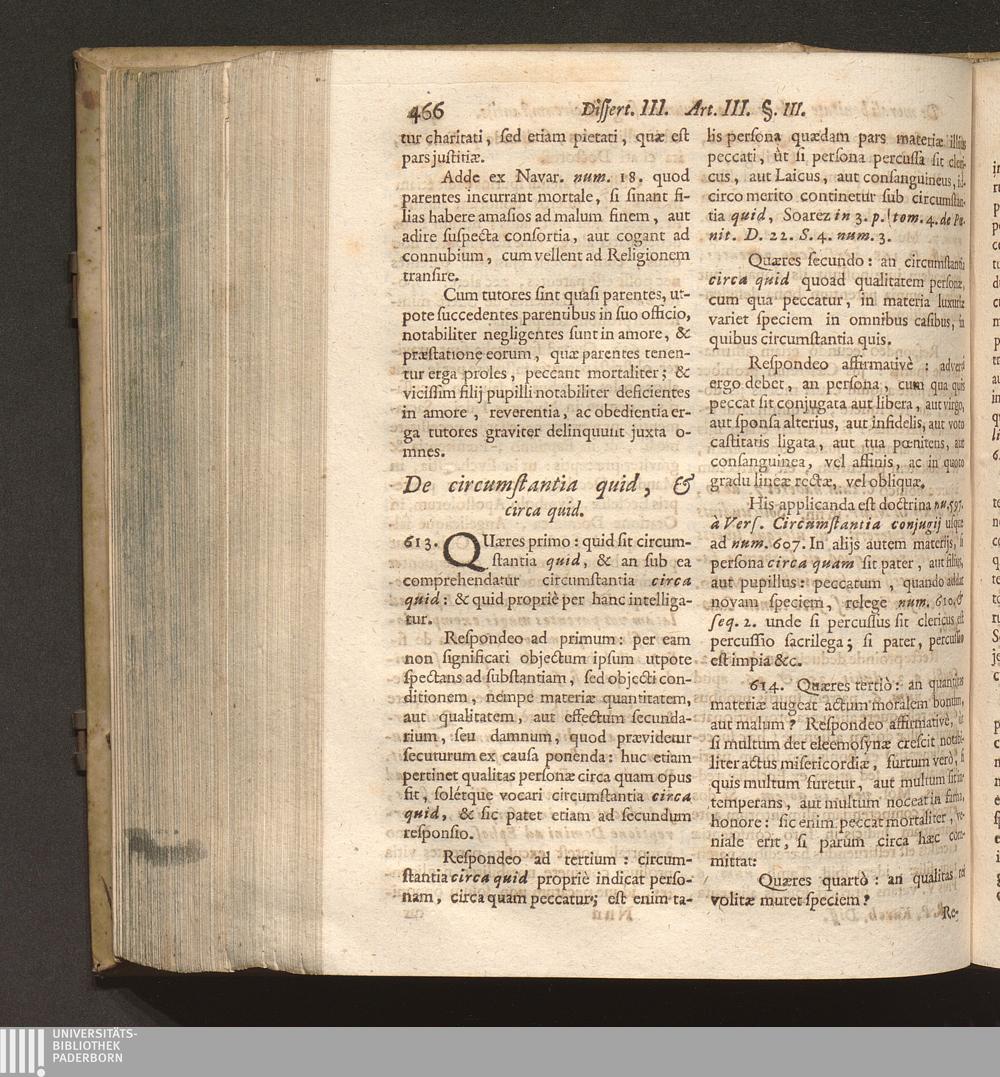 466 Dissert. III. Art. III. §. III.
tur charitati, sed etiam pietati, quæ est
pars justitiæ.
Adde ex Navar. num. 18. quod
parentes incurrant mortale, si sinant fi-
lias habere amasios ad malum finem, aut
adire suspecta consortia, aut cogant ad
connubium, cum vellent ad Religionem
transire.
Cum tutores sint quasi parentes, ut-
pote succedentes parentibus in suo officio,
notabiliter negligentes sunt in amore, &
præstatione eorum, quæ parentes tenen-
tur erga proles, peccant mortaliter; &
vicissim filij pupilli notabiliter deficientes
in amore, reverentia, ac obedientia er-
ga tutores graviter delinquunt juxta o-
mnes.
De circumstantia quid, &
circa quid.
613. QUæres primo: quid sit circum-
stantia quid, & an sub ea
comprehendatur circumstantia circa
quid: & quid propriè per hanc intelliga-
tur.
Respondeo ad primum: per eam
non significari objectum ipsum utpote
spectans ad substantiam, sed objecti con-
ditionem, nempe materiæ quantitatem,
aut qualitatem, aut effectum secunda-
rium, seu damnum, quod prævidetur
secuturum ex causa ponenda: huc etiam
pertinet qualitas personæ circa quam opus
fit, solétque vocari circumstantia circa
quid, & sic patet etiam ad secundum
responsio.
Respondeo ad tertium: circum-
stantia circa quid propriè indicat perso-
nam, circa quam peccatur; est enim ta-
lis persona quædam pars materiæ illius
peccati, ùt si persona percussa sit cleri-
cus, aut Laicus, aut consanguineus, id-
circo merito continetur sub circumstan-
tia quid, Soarez in 3. p. tom. 4. de Pœ-
nit. D. 22. S. 4. num. 3.
Quæres secundo: an circumstantia
circa quid quoad qualitatem personæ,
cum qua peccatur, in materia luxuriæ
variet speciem in omnibus casibus, in
quibus circumstantia quis.
Respondeo affirmativè: adverti
ergo debet, an persona, cum qua quis
peccat sit conjugata aut libera, aut virgo,
aut sponsa alterius, aut infidelis, aut voto
castitatis ligata, aut tua pœnitens, aut
consanguinea, vel affinis, ac in quoto
gradu lineæ rectæ, vel obliquæ.
His applicanda est doctrina nu. 597.
à Vers. Circumstantia conjugij usque
ad num. 607. In alijs autem materijs, si
persona circa quam sit pater, aut filius,
aut pupillus: peccatum, quando addat
novam speciem, relege num. 610. &
seq. 2. unde si percussus sit clericus, est
percussio sacrilega; si pater, percussio
est impia &c.
614. Quæres tertiò: an quantitas
materiæ augeat actum moralem bonum,
aut malum? Respondeo affirmativè, ùt
si multum det eleemosynæ crescit notabi-
liter actus misericordiæ, furtum verò, si
quis multum furetur, aut multum sit in-
temperans, aut multum noceat in fama,
honore: sic enim peccat mortaliter, ve-
niale erit, si parum circa hæc com-
mittat:
Quæres quartò: an qualitas rei
volitæ mutet speciem?
Re-
UNIVERSITÄTS-
BIBLIOTHEK
PADERBORN